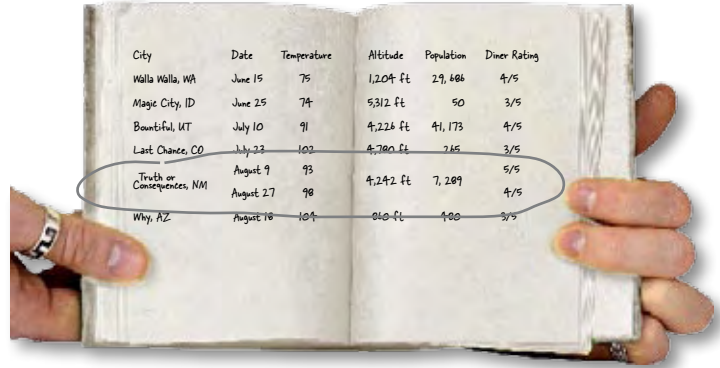 City Date Temperature Altitude Population Diner Rating
Walla Walla, WA June 15 75 1,204 ft 29,686 4/5
Magic City, ID June 25 74 5,312 ft 50 3/5
Bountiful, UT July 10 91 4,226 ft 41,173 4/5
Last Chance, CO July 23 102 4,780 ft 265 3/5
Truth or Consequences, NM August 9 93 4,242 ft 7,289 5/5
August 27 98 4/5
Why, AZ August 18 104 860 ft 480 3/5